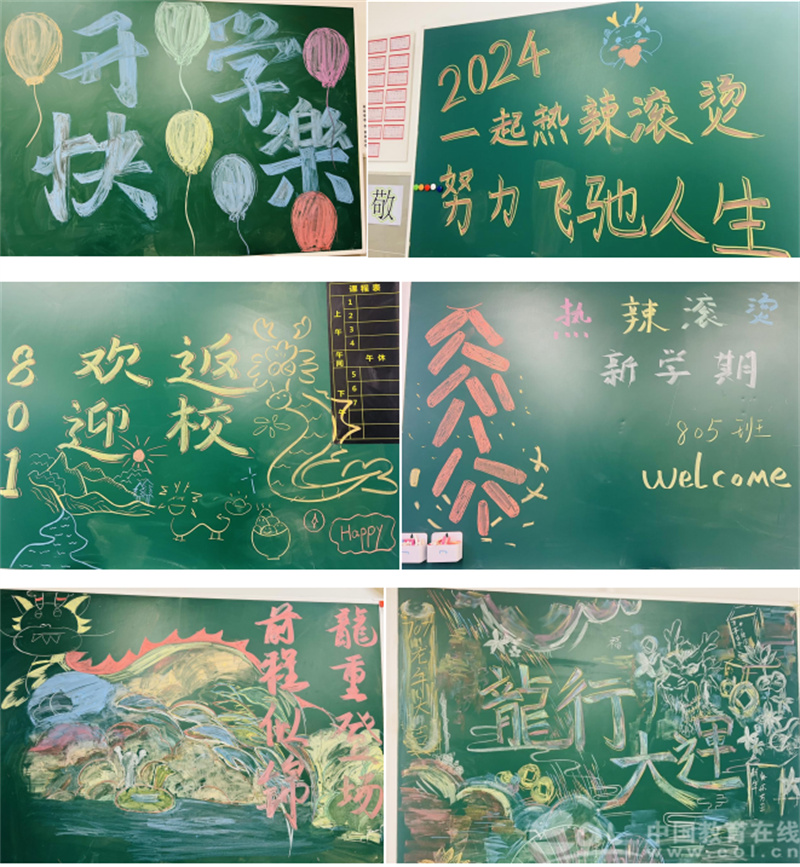 开学
快樂
2024
一起热辣滚烫
努力飞驰人生
敬
801
欢迎
返校
Happy
课程表
上午
1
2
3
4
午间
午休
下午
5
6
7
热辣滚烫
新学期
805班
welcome
龍重登场
前程似锦
龍行
大運
福
中国教育在线
www.eol.cn